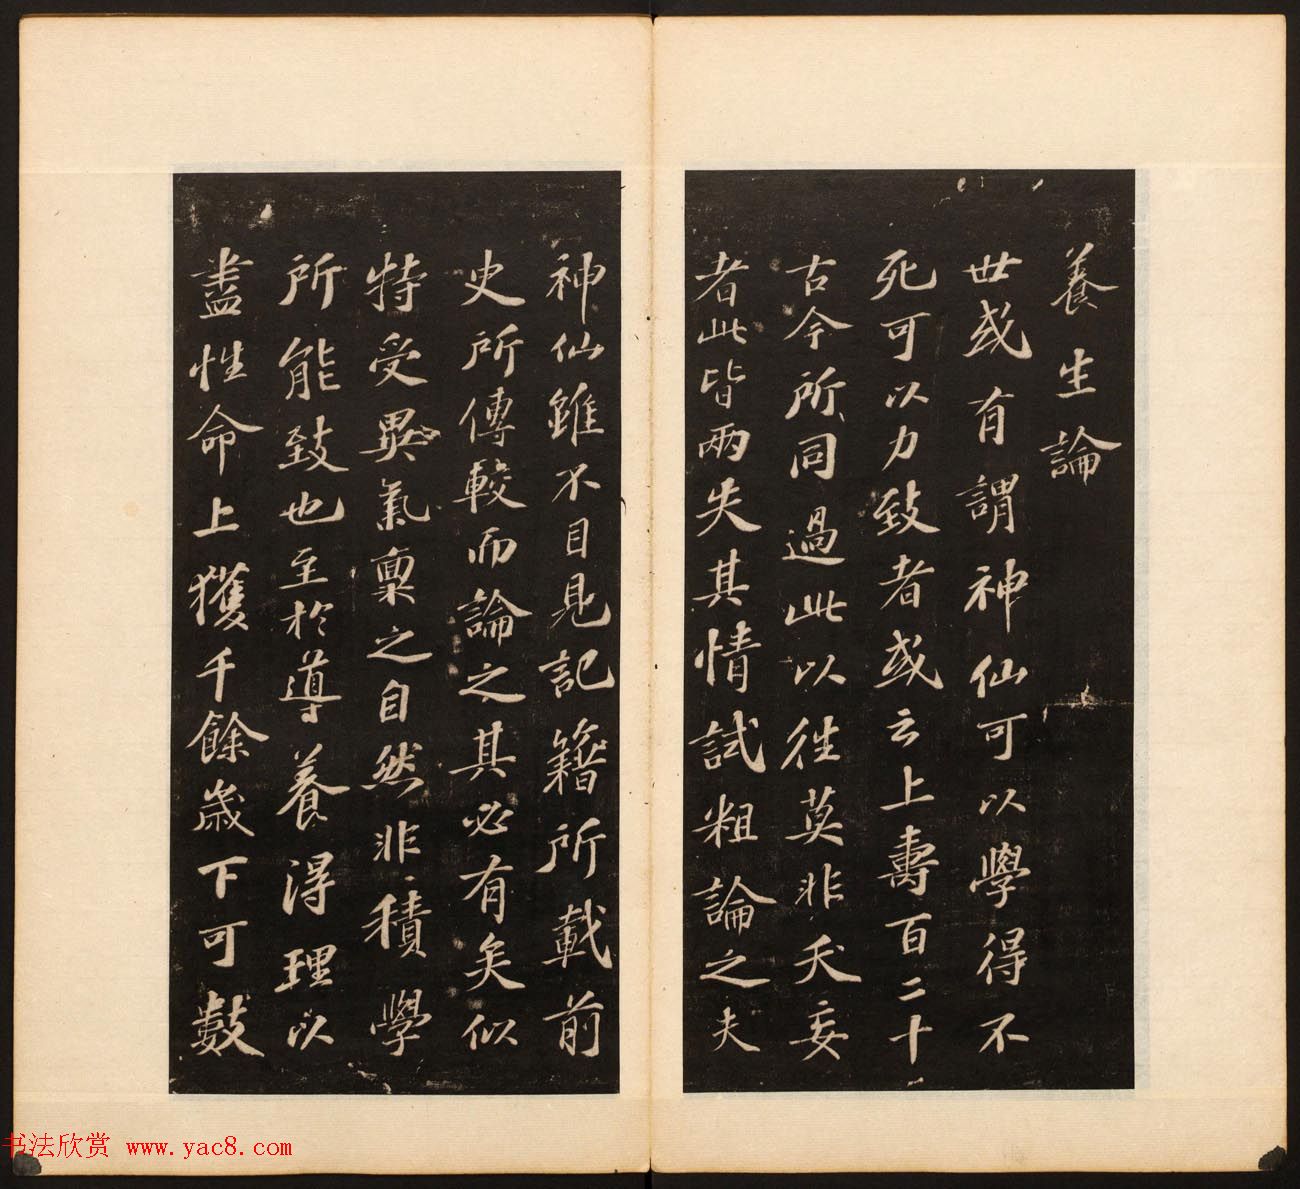 養生論
世或有謂神仙可以學得不
死可以力致者或云上壽百二十
古今所同過此以往莫非夭妄
者此皆兩失其情試粗論之夫
神仙雖不目見記籍所載前
史所傳較而論之其必有矣似
特受異氣稟之自然非積學
所能致也至於導養得理以
盡性命上獲千餘歲下可數
书法欣赏 www.yac8.com